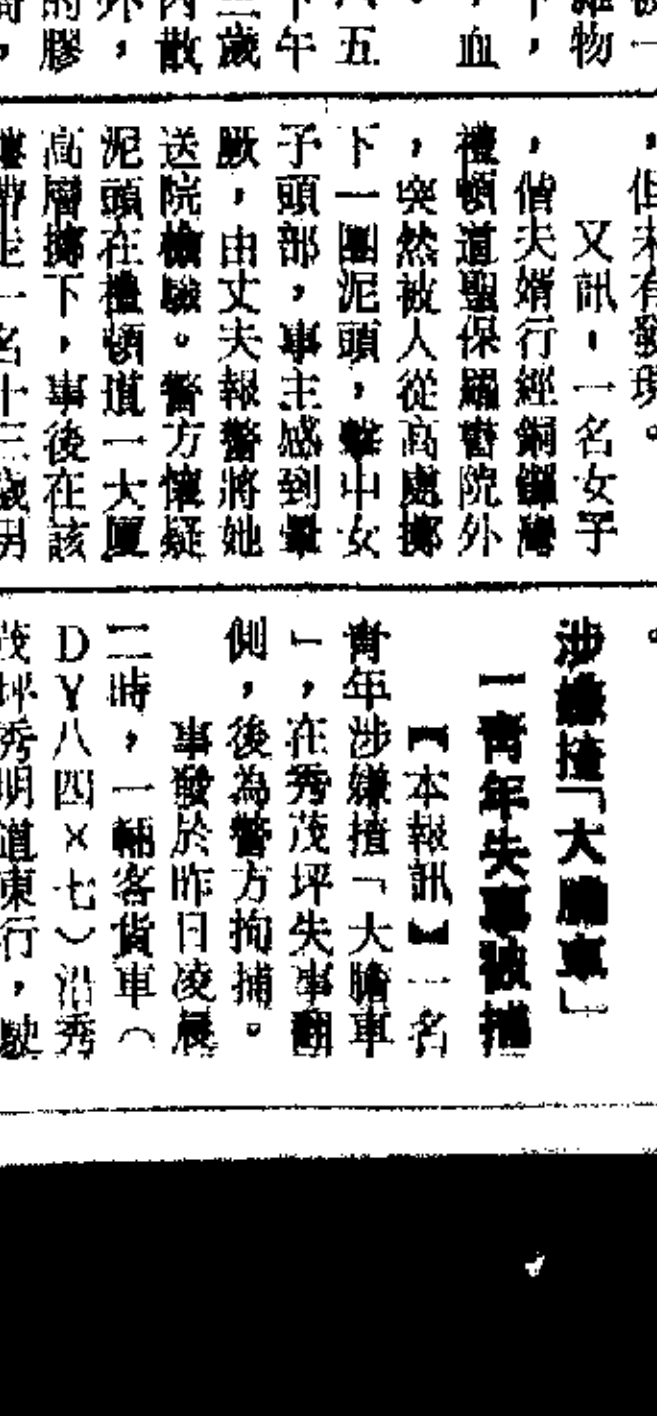 雜物
下，
，血
。
八五
下午
三歲
內散
外，
的膠
，但未有發現。
又訊，一名女子
，偕夫婿行經銅鑼灣
禮頓道聖保羅書院外
，突然被人從高處擲
下一團泥頭，擊中女
子頭部，事主感到暈
厥，由丈夫報警將她
送院檢驗。警方懷疑
泥頭在禮頓道一大廈
高層擲下，事後在該
樓帶走一名十三歲男
。
涉嫌揸「大膽車」
一青年失事被捕
【本報訊】一名
青年涉嫌揸「大膽車
」，在秀茂坪失事翻
側，後為警方拘捕。
事發於昨日凌晨
二時，一輛客貨車（
ＤＹ八四×七）沿秀
茂坪秀明道東行，駛